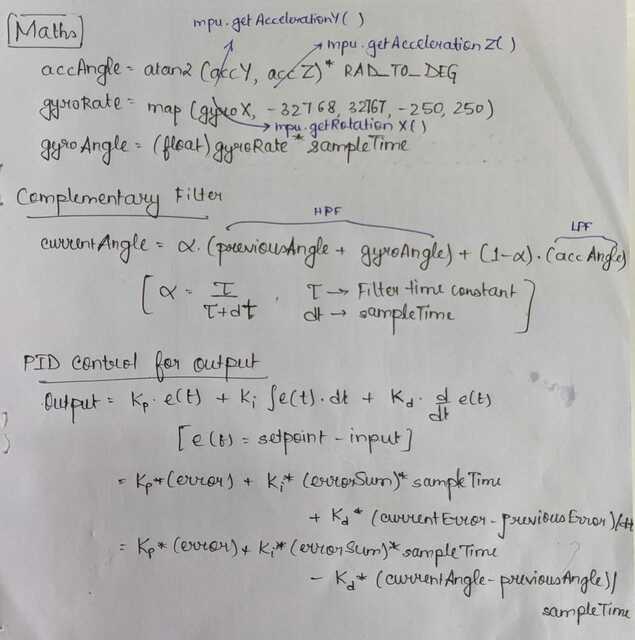 Maths
mpu.getAccelerationY()
mpu.getAccelerationZ()
accAngle = atan2 (accY, accZ)* RAD_TO_DEG
gyroRate = map (gyroX, -32768, 32767, -250, 250)
mpu.getRotationX()
gyroAngle = (float) gyroRate * sampleTime
Complementary Filter
HPF
LPF
currentAngle = α. (previousAngle + gyroAngle) + (1-α). (accAngle)
[α = τ/(τ+dt), τ → Filter time constant
dt → sampleTime]
PID control for output
Output = Kp. e(t) + Ki ∫e(t). dt + Kd. d/dt e(t)
[e(t) = setpoint - input]
= Kp*(error) + Ki* (errorSum)* sampleTime
+ Kd* (currentError - previousError)/dt
= Kp* (error) + Ki* (errorSum)* sampleTime
- Kd* (currentAngle - previousAngle)/
sampleTime